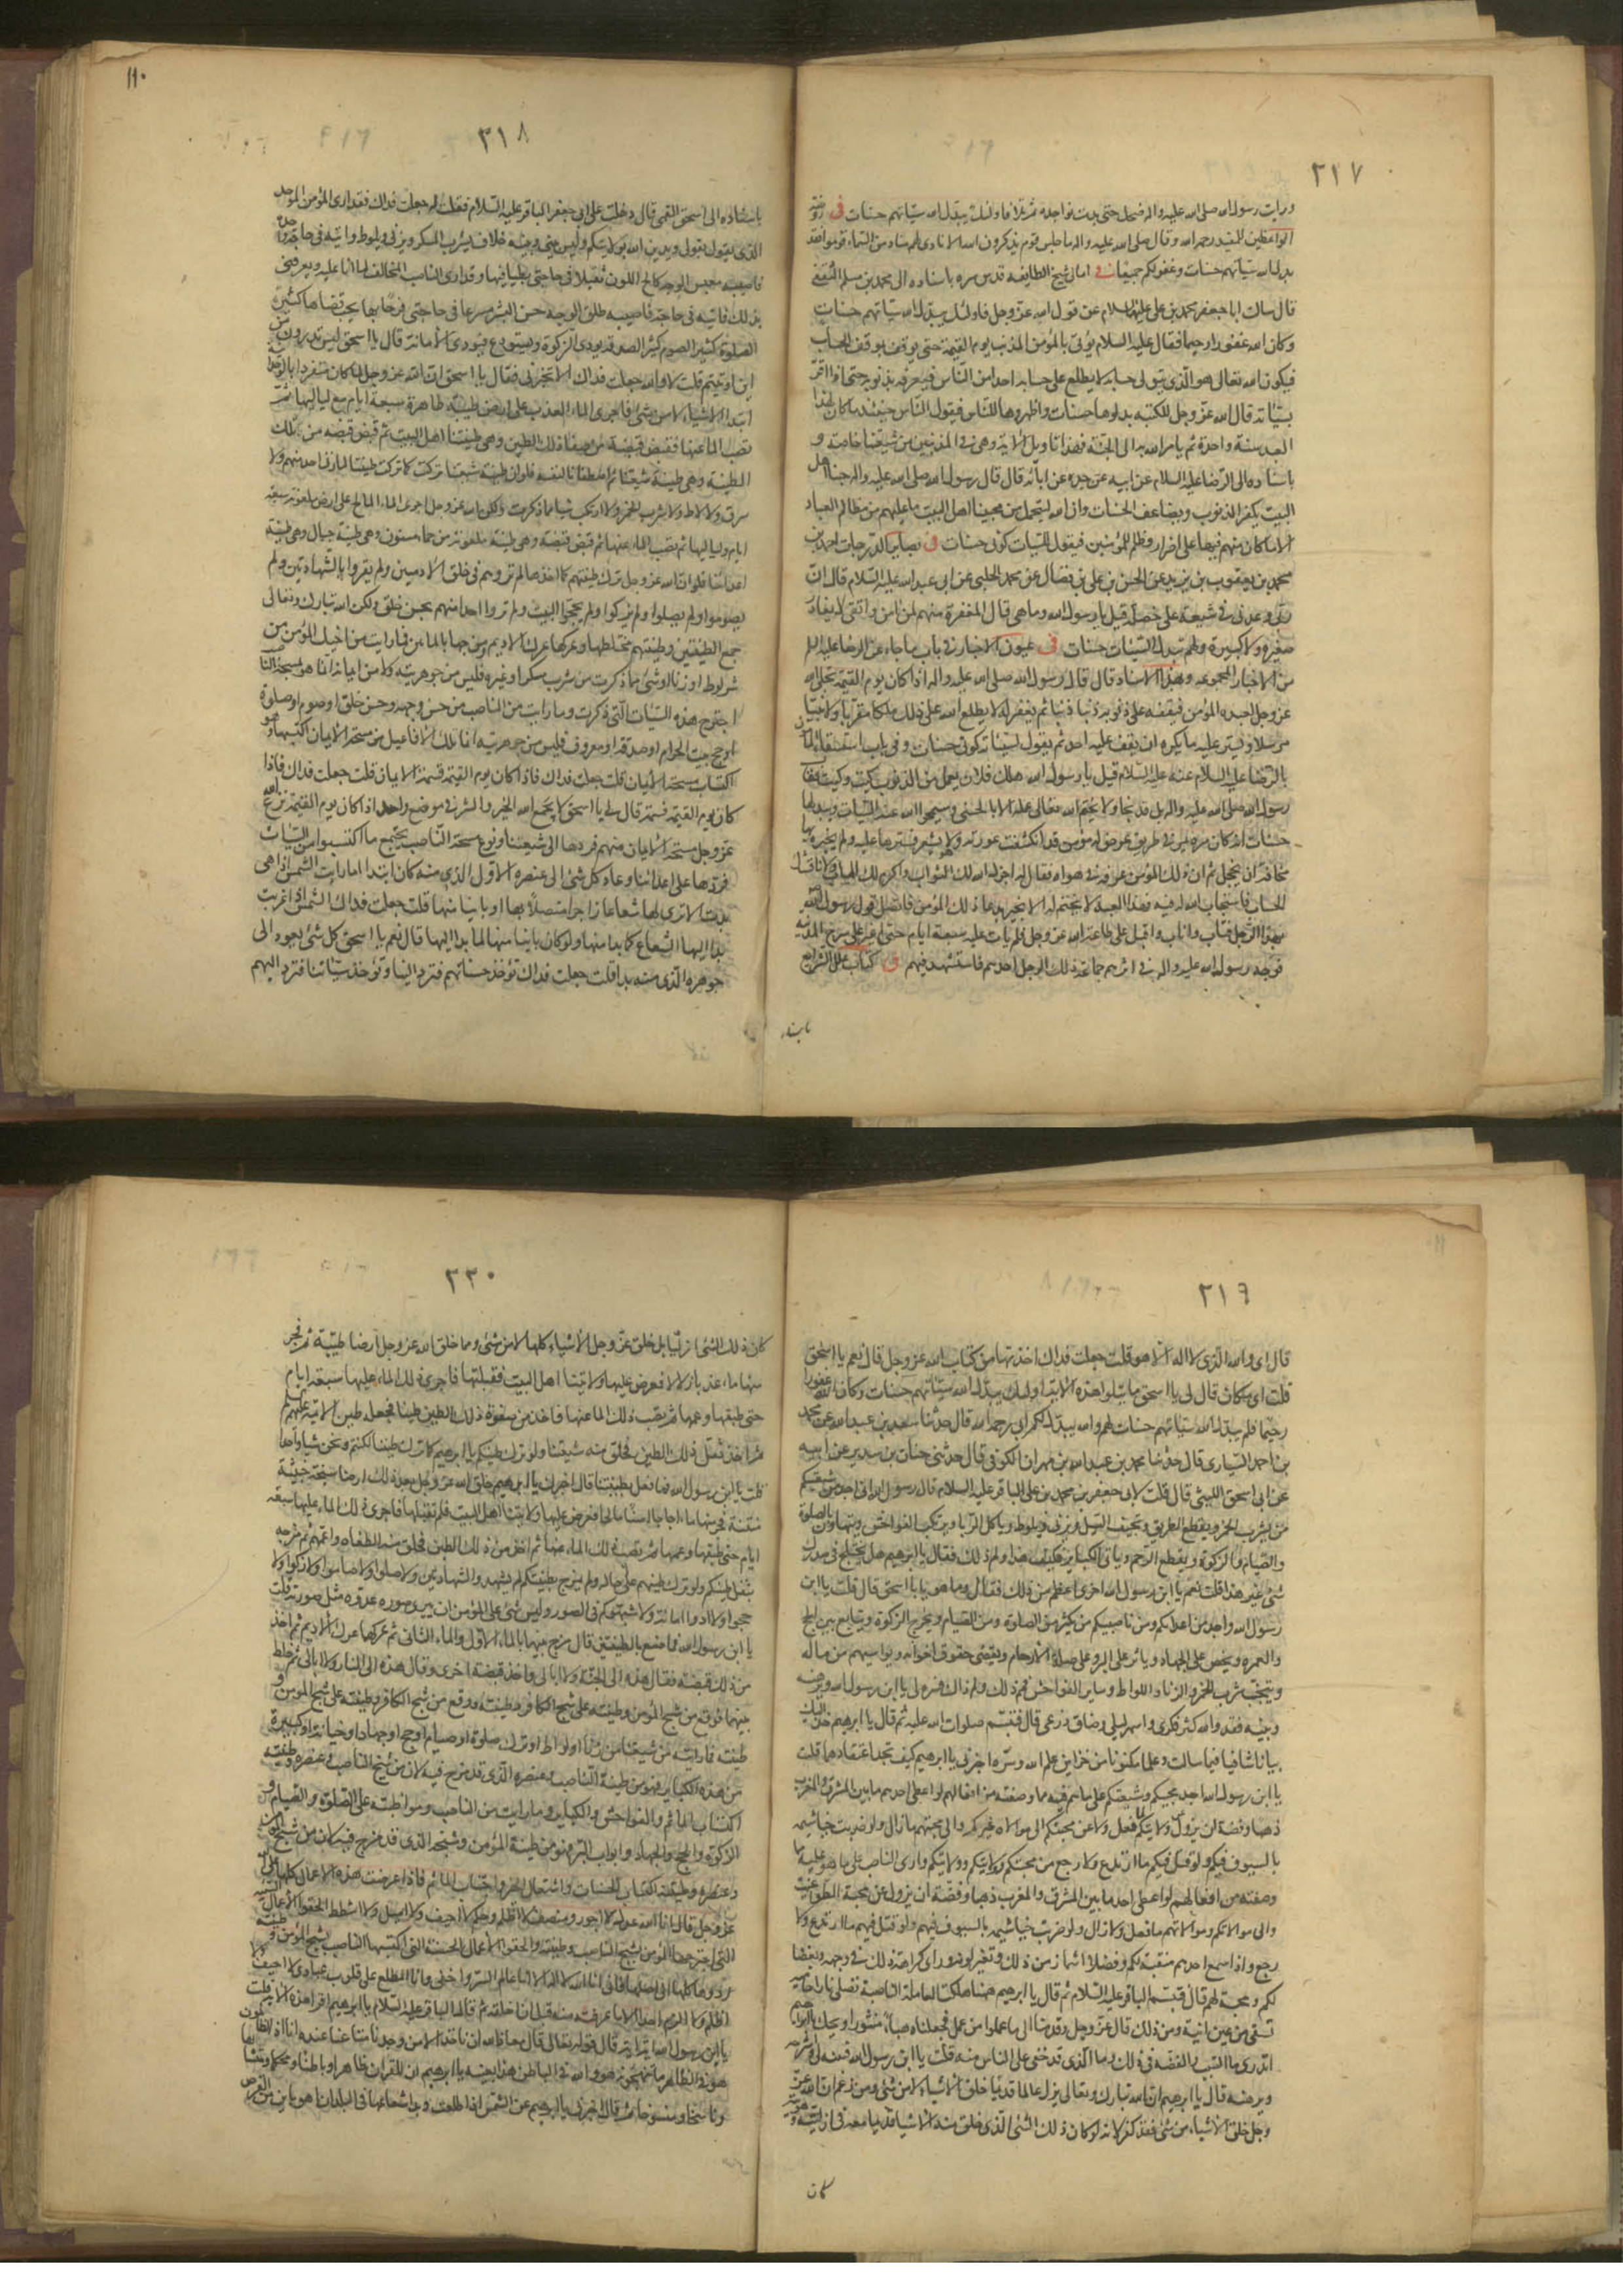 ٣١٧
ورايت رسول الله صلى الله عليه واله ضحك حتى بدت نواجده ثم تلا فاولئك يبدل الله سيئاتهم حسنات فى روضة
الواعظين للمفيد رحمه الله وقال صلى الله عليه واله ما جلس قوم يذكرون الله الا نادى لهم مناد من السماء قوموا فقد
بدل الله سيئاتهم حسنات وغفر لكم جميعا فى امالى شيخ الطايفه قدس سره باسناده الى محمد بن مسلم الثقفى
قال سالت ابا جعفر محمد بن على عليهما السلام عن قول الله عز وجل فاولئك يبدل الله سيئاتهم حسنات
وكان الله غفورا رحيما فقال عليه السلام يؤتى بالمؤمن المذنب يوم القيمة حتى يوقف بموقف الحساب
فيكون الله تعالى هو الذى يتولى حسابه لا يطلع على حسابه احدا من الناس فيعرفه ذنوبه حتى اذا اقر
بسيئاته قال الله عز وجل للكتبه بدلوها حسنات واظهروها للناس فيقول الناس حينئذ ما كان لهذا
العبد سيئة واحدة ثم يامر الله به الى الجنة فهذا تاويل الاية وهى فى المذنبين من شيعتنا خاصة و
باسناده الى الرضا عليه السلام عن ابيه عن جده عن ابائه قال قال رسول الله صلى الله عليه واله حبنا اهل
البيت يكفر الذنوب ويضاعف الحسنات وان الله ليتحمل من محبينا اهل البيت ما عليهم من مظالم العباد
الا ما كان منهم فيها على اضرار وظلم للمؤمنين فيقول للسيئات كونى حسنات فى بصاير الدرجات احمد بن
محمد بن يعقوب بن يزيد عن الحسن بن على بن فضال عن محمد الحلبى عن ابى عبد الله عليه السلام قال ان
ربى وعدنى فى شيعة على خصلة قيل يا رسول الله وما هى قال المغفرة منهم لمن امن واتقى لا يغادر
صغيرة ولا كبيرة ولهم تبدل السيئات حسنات فى عيون الاخبار فى باب ما جاء عن الرضا عليه السلم
من الاخبار المجموعه وبهذا الاسناد قال قال رسول الله صلى الله عليه واله اذا كان يوم القيمة تجلى الله
عز وجل لعبده المؤمن فيقفه على ذنوبه ذنبا ذنبا ثم يغفر له لا يطلع الله على ذلك ملكا مقربا ولا نبيا
مرسلا ويستر عليه ما يكره ان يقف عليه احد ثم يقول لسيئاته كونى حسنات وفى باب استسقاء المامون
بالرضا عليه السلام عنه عليه السلام قيل يا رسول الله هلك فلان يعمل من الذنوب كيت وكيت فقال
رسول الله صلى الله عليه واله بل قد نجا ولا يختم الله تعالى عمله الا بالحسنى وسيمحو الله عنه السيئات ويبدلها
حسنات انه كان مرة يمر فى طريق عرض له مؤمن قد انكشفت عورته وهو لا يشعر فسترها عليه ولم يخبره بها
مخافة ان يخجل ثم ان ذلك المؤمن عرفه فى هواه فقال له اجزل الله لك الثواب واكرم لك الماب ولا ناقشك
الحساب فاستجاب الله له فيه فهذا العبد لا يختم له الا بخير بدعاء ذلك المؤمن فاتصل قول رسول الله
بهذا الرجل فتاب واناب واقبل على طاعة الله عز وجل فلم يات عليه سبعة ايام حتى اغير على سرح المدينة
فوجه رسول الله عليه واله فى اثرهم جماعة ذلك الرجل احدهم فاستشهد فيهم فى كتاب علل الشرايع
باسناده
١١٠
٣١٨
باسناده الى اسحق القمى قال دخلت على ابى جعفر الباقر عليه السلام فقلت له جعلت فداك فقد ارى المؤمن الموحد
الذى يقول بقولى ويدين الله بولايتكم وليس بينى وبينه خلاف يشرب السكر ويزنى ويلوط واتيه فى حاجة واحدة
فاصيبه معبس الوجه كالح اللون ثقيلا فى حاجتى بطيئا فيها وقد ارى الناصب المخالف لما انا عليه ويعرفنى
بذلك فاتيه فى حاجة فاصيبه طلق الوجه حسن البشر مسرعا فى حاجتى فرحا بها يحب قضاها كثير
الصلوة كثير الصوم كثير الصدقه يؤدى الزكوة ويستودع فيؤدى الامانة قال يا اسحق ليس تدرون من
اين اوتيتم قلت لا والله جعلت فداك الا تخبرنى فقال يا اسحق ان الله عز وجل لما كان متفردا بالوحدانية
ابتدا الاشياء لا من شئ فاجرى الماء العذب على ارض طيبة طاهرة سبعة ايام مع لياليها ثم
نضب الماء عنها فقبض قبضة من صفاء ذلك الطين وهى طينتنا اهل البيت ثم قبض قبضة من تلك
الطينة وهى طينة شيعتنا ثم اصطفانا لنفسه فلو ان طينة شيعتنا تركت كما تركت طينتنا لما زنى احد منهم ولا
سرق ولا لاط ولا شرب الخمر ولا ارتكب شيئا مما ذكرت ولكن الله عز وجل اجرى الماء المالح على ارض ملعونة سبعة
ايام ولياليها ثم نضب الماء عنها ثم قبض قبضة وهى طينة ملعونة من حما مسنون وهى طينة خبال وهى طينة
اعدائنا فلو ان الله عز وجل ترك طينتهم كما اخذها لم تروهم فى خلق الادميين ولم يقروا بالشهادتين ولم
يصوموا ولم يصلوا ولم يزكوا ولم يحجوا البيت ولم تروا احدا منهم بحسن خلق ولكن الله تبارك وتعالى
جمع الطينتين وطينتهم فخلطها وعركها عرك الاديم ومزجها بالمائين فما رايت من اخيك المؤمن من
شر لواط او زنا او شئ مما ذكرت من شرب مسكر او غيره فليس من جوهريته ولا من ايمانه انما هو بمسحة الناصب
اجترح هذه السيئات التى ذكرت وما رايت من الناصب من حسن وجهه وحسن خلق او صوم او صلوة
او حج بيت الحرام او صدقة او معروف فليس من جوهريته انما تلك الافاعيل من مسحة الايمان اكتسبها وهو
اكتساب مسحة الايمان قلت جعلت فداك فاذا كان يوم القيمة فمه
كان يوم القيمة فمه قال لى يا اسحق لا يجمع الله الخير والشر فى موضع واحد اذا كان يوم القيمة نزع الله
عز وجل مسحة الايمان منهم فردها الى شيعتنا ونزع مسحة الناصب بجميع ما اكتسبوا من السيئات
فردها على اعدائنا وعاد كل شئ الى عنصره الاول الذى منه كان ابتدا اما رايت الشمس اذا هى
بدت الا ترى لها شعاعا زاجرا متصلا بها او باينا منها قلت جعلت فداك الشمس اذا غربت
بدا اليها الشعاع كما بدا منها ولو كان باينا منها لما بدا اليها قال نعم يا اسحق كل شئ يعود الى
جوهره الذى منه بدا قلت جعلت فداك تؤخذ حسناتهم فترد الينا وتؤخذ سيئاتنا فترد اليهم
٣١٩
قال اى والله الذى لا اله الا هو قلت جعلت فداك اخذتها من كتاب الله عز وجل قال نعم يا اسحق
قلت اى مكان قال لى يا اسحق ما تتلو هذه الاية اولئك يبدل الله سيئاتهم حسنات وكان الله غفورا
رحيما فلم يبدل الله سيئاتهم حسنات لهم والله يبدل لكم ابى رحمه الله قال حدثنا سعد بن عبد الله عن محمد
بن احمد السيارى قال حدثنا محمد بن عبد الله بن مهران الكوفى قال حدثنى حنان بن سدير عن ابيه
عن ابى اسحق الليثى قال قلت لابى جعفر بن محمد بن على الباقر عليه السلام قال رسول الله انى اجد من شيعتكم
من يشرب الخمر ويقطع الطريق ويخيف السبل ويزنى ويلوط وياكل الربا ويرتكب الفواحش ويتهاون بالصلوة
والصيام والزكوة ويقطع الرحم وياتى الكباير فكيف هذا ولم ذلك فقال يا ابراهيم هل يختلج فى صدرك
شئ غير هذا قلت نعم يا ابن رسول الله اخرى اعظم من ذلك فقال وما هو يا ابا اسحق قال قلت يا ابن
رسول الله واجد من اعدائكم ومن ناصبيكم من يكثر من الصلوة ومن الصيام ويخرج الزكوة ويتابع بين الحج
والعمره ويحض على الجهاد وياثر على البر وعلى صلة الارحام ويقضى حقوق اخوانه ويواسيهم من ماله
ويتجنب شرب الخمر والزنا واللواط وساير الفواحش فمم ذلك ولم ذاك فسره لى يا ابن رسول الله وبرهنه
وبينه فقد والله كثر فكرى واسهر ليلى وضاق ذرعى قال فتبسم صلوات الله عليه ثم قال يا ابرهيم خذ اليك
بيانا شافيا فيما سالت وعلما مكنونا من خزاين علم الله وسره اخبرنى يا ابرهيم كيف تجد اعتقادهما قلت
يا ابن رسول الله اجد محبيكم وشيعتكم على ما هم فيه مما وصفته من افعالهم لو اعطى احدهم ما بين المشرق والمغرب
ذهبا وفضة ان يزول عن ولايتكم لما فعل ولا عن محبتكم الى موالاة غيركم والى محبتهم ما زال ولو ضربت خياشيمه
بالسيوف فيكم ولو قتل فيكم ما ارتدع ولا رجع من محبتكم وولايتكم وارى الناصب على ما هو عليه مما
وصفته من افعالهم لو اعطى احدهم ما بين المشرق والمغرب ذهبا وفضة ان يزول عن محبة الطواغيت
والى موالاتكم وموالاتهم ما فعل ولا زال ولو ضربت خياشيمه بالسيوف فيهم ولو قتل فيهم ما ارتدع ولا
رجع واذا سمع احدهم منقبة لكم وفضلا اشمأز من ذلك وتغير لونه وراى كراهة ذلك فى وجهه وبغضا
لكم ومحبة لهم قال فتبسم الباقر عليه السلام ثم قال يا ابرهيم هيهنا هلكت العاملة الناصبة تصلى نارا حامية
تسقى من عين انية ومن ذلك قال عز وجل وقدمنا الى ما عملوا من عمل فجعلناه هباء منثورا ويحك يا ابرهيم
اتدرى ما السبب والقصة فى ذلك وما الذى قد خفى على الناس منه قلت يا ابن رسول الله فبينه لى واشرحه
وبرهنه قال يا ابرهيم ان الله تبارك وتعالى لم يزل عالما قديما خلق الاشياء لا من شئ ومن زعم ان الله عز
وجل خلق الاشياء من شئ فقد كفر لانه لو كان ذلك الشئ الذى خلق منه الاشياء قديما معه فى ازليته وهويته
كان
٣٢٠
كان ذلك الشئ ازليا بل خلق عز وجل الاشياء كلها لا من شئ ومما خلق الله عز وجل ارضا طيبة ثم فجر
منها ماء عذبا زلالا فعرض عليها ولايتنا اهل البيت فقبلتها فاجرى ذلك الماء عليها سبعة ايام
حتى طبقها وعمها ثم نضب ذلك الماء عنها فاخذ من صفوة ذلك الطين طينا فجعله طين الائمة عليهم السلم
ثم اخذ ثفل ذلك الطين فخلق منه شيعتنا ولو ترك طينتكم يا ابرهيم كما ترك طينتنا لكنتم ونحن شيئا واحدا
قلت يا ابن رسول الله فما فعل بطينتنا قال اخبرك يا ابرهيم خلق الله عز وجل بعد ذلك ارضا سبخة خبيثة
منتنة ثم فجر منها ماء اجاجا اسنا مالحا فعرض عليها ولايتنا اهل البيت فلم تقبلها فاجرى ذلك الماء عليها سبعة
ايام حتى طبقها وعمها ثم نضب ذلك الماء عنها ثم اخذ من ذلك الطين فخلق منه الطغاه وائمتهم ثم مزجه
بثفل طينتكم ولو ترك طينتهم على حاله ولم يمزج بطينتكم لم يشهدوا الشهادتين ولا صلوا ولا صاموا ولا زكوا ولا
حجوا ولا ادوا امانة ولا شبهوكم فى الصور وليس شئ على المؤمن ان يرى صورة عدوه مثل صورته قلت
يا ابن رسول الله فما صنع بالطينتين قال مزج بينهما بالماء الاول والماء الثانى ثم عركها عرك الاديم ثم اخذ
من ذلك قبضة فقال هذه الى الجنة ولا ابالى واخذ قبضة اخرى وقال هذه الى النار ولا ابالى ثم خلط
بينهما فوقع من سنخ المؤمن وطينته على سنخ الكافر وطينته ووقع من سنخ الكافر وطينته على سنخ المؤمن و
طينته فما رايته من شيعتنا من زنا او لواط او ترك صلوة او صيام او حج او جهاد او خيانة او كبيرة
من هذه الكباير فهو من طينة الناصب وعنصره الذى قد مزج فيه لان من سنخ الناصب وعنصره وطينته
اكتساب الماثم والفواحش والكباير وما رايت من الناصب ومواظبته على الصلوة والصيام و
الزكوة والحج والجهاد وابواب البر فهو من طينة المؤمن وسنخه الذى قد مزج فيه لان من سنخ المؤمن
وعنصره وطينته اكتساب الحسنات واستعمال الخير واجتناب الماثم فاذا عرضت هذه الاعمال كلها على الله
عز وجل قال انا الله عدل لا اجور ومنصف لا اظلم وحكم لا احيف ولا اميل ولا اشطط الحقوا الاعمال السيئة
التى اجترحها المؤمن بسنخ الناصب وطينته والحقوا الاعمال الحسنة التى اكتسبها الناصب بسنخ المؤمن و طينته
ردوها كلها الى اصلها فانى انا الله لا اله الا انا عالم السر واخفى وانا المطلع على قلوب عبادى لا احيف ولا
اظلم ولا الزم احدا الا ما عرفته منه قبل ان اخلقه ثم قال الباقر عليه السلام يا ابرهيم اقرا هذه الاية قلت
يا ابن رسول الله اية اية قال قوله تعالى قال معاذ الله ان ناخذ الا من وجدنا متاعنا عنده انا اذا لظالمون
هو فى الظاهر ما تفهمونه هو والله فى الباطن هذا بعينه يا ابرهيم ان للقران ظاهرا وباطنا ومحكما ومتشابها
وناسخا ومنسوخا ثم قال اخبرنى يا ابرهيم عن الشمس اذا طلعت وبدا شعاعها فى البلدان اهو باين من القرص